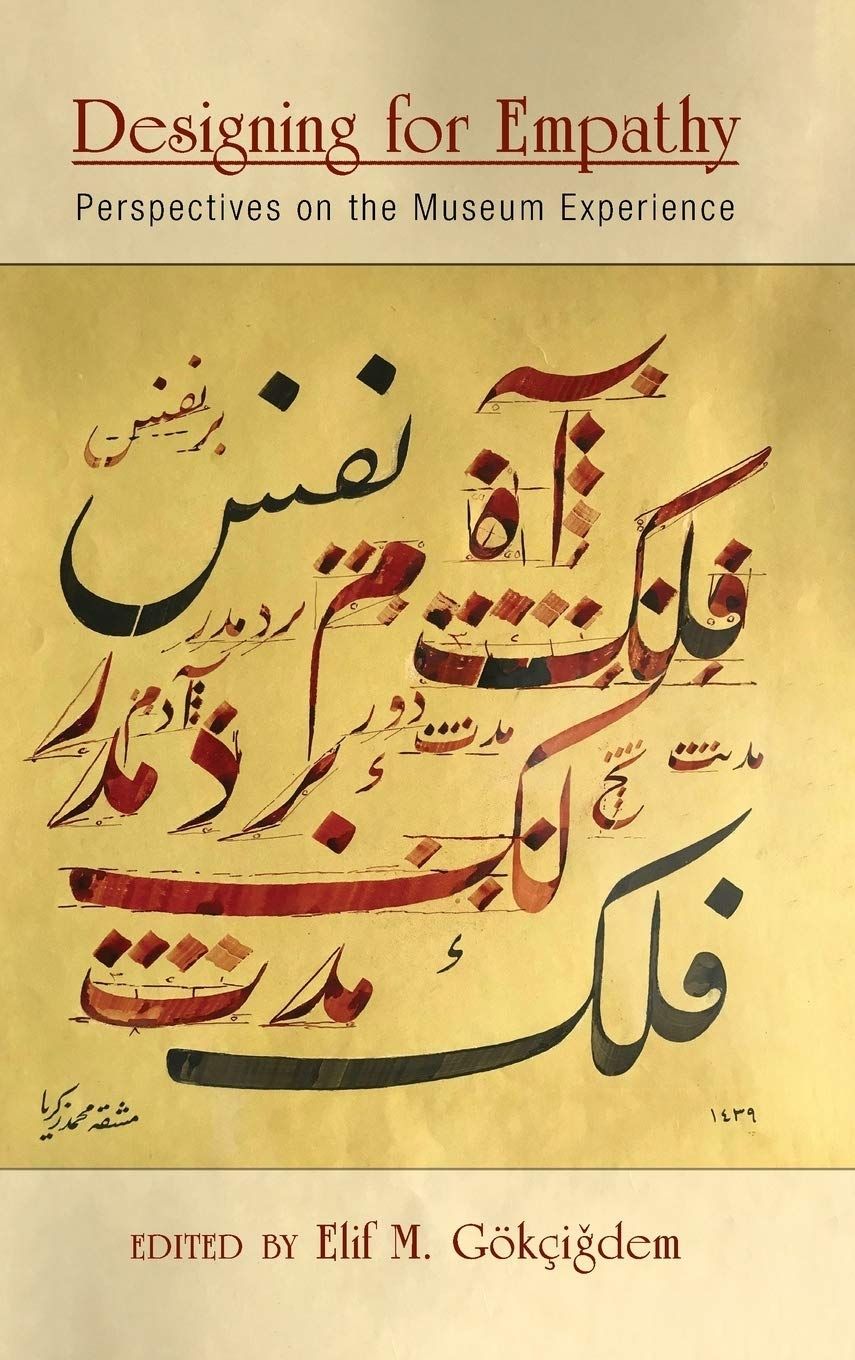 Designing for Empathy
Perspectives on the Museum Experience
بر نفس
نفس
فلک
آدم
دور
مدت
مدت
مدت
فلک
مشقه محمد زكريا
١٤٣٩
EDITED BY Elif M. Gökçiğdem